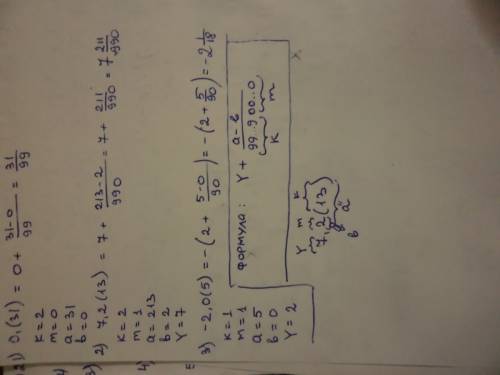 1) 0,(31) = 0 + 31-0/99 = 31/99
k=2
m=0
a=31
b=0
2) 7,2(13) = 7 + 213-2/990 = 7 + 211/990 = 7 211/990
k=2
m=1
a=213
b=2
Y=7
3) -2,0(5) = -(2 + 5-0/90) = -(2 + 5/90) = -2 1/18
k=1
m=1
a=5
b=0
Y=2
формула: Y + a-b/99..9 00...0
k m
Y m k
7,2(13)
b a